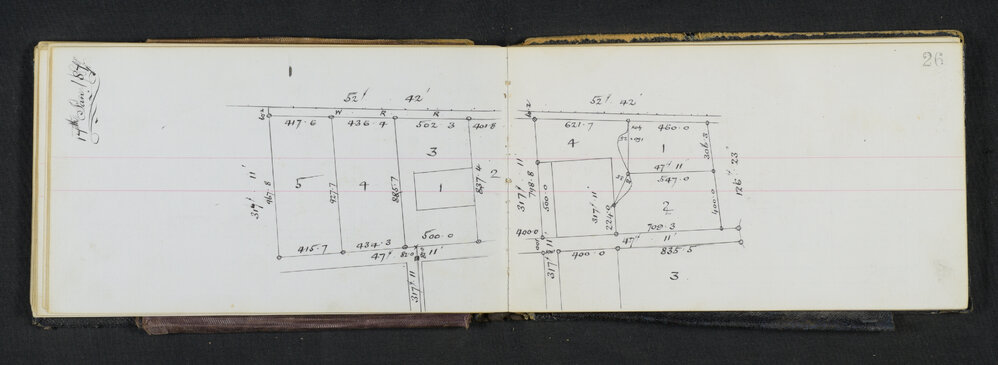 17th Jan 187
1
52° 42'
W R R
602
417.6 436.4 502.3 401.8
3
5 4 1 2
317° 11'
967.8
927.7
885.7
837.4
500.0
415.7 434.3
47° 11'
317° 11'
26
52° 42'
602
621.7 460.0
4 1
306.3
47° 11'
547.0
317° 11'
798.8
560.0
317° 11'
224.0
2
400.0
126° 23'
400.0
708.3
47° 11'
317° 11'
400.0 835.5
3